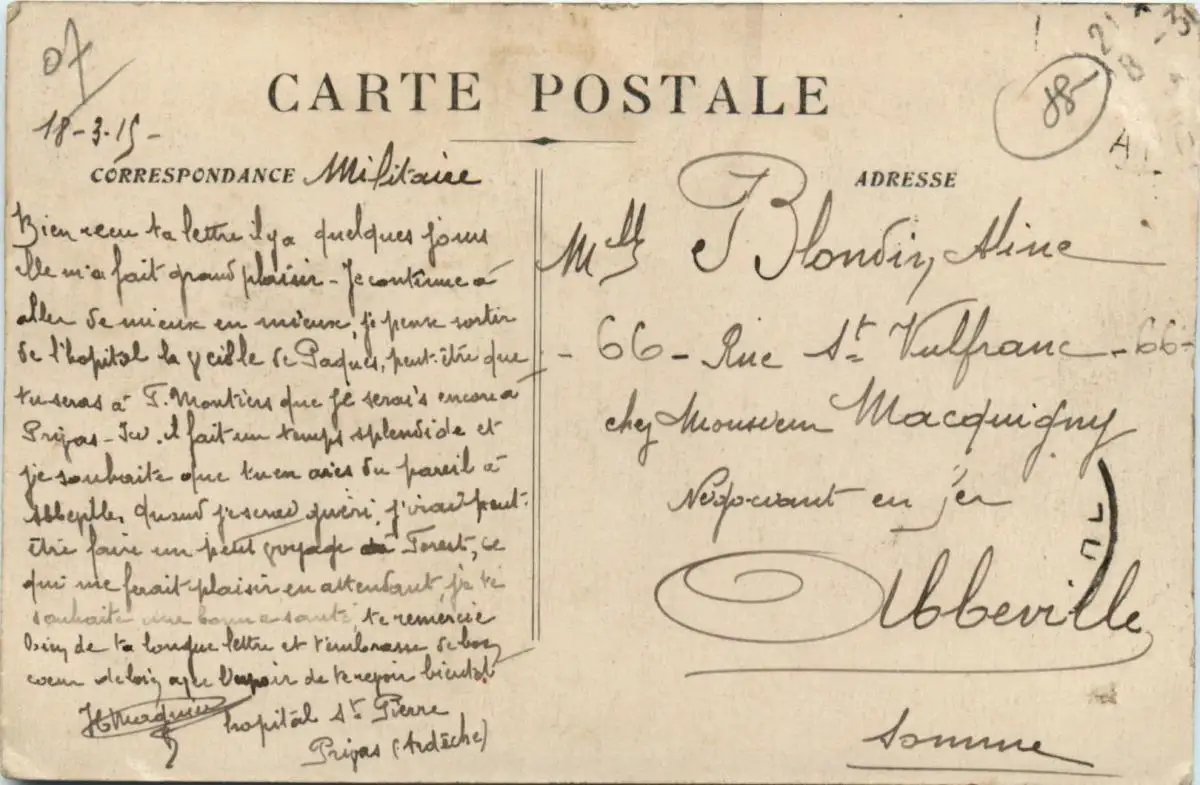 07
18-3-15-
CARTE POSTALE
CORRESPONDANCE Militaire
Bien recu ta lettre il y a quelques jours
elle m'a fait grand plaisir - Je continue à
aller de mieux en mieux, je peux sortir
de l'hopital la veille de Paques, peut-être que
tu seras à F. Moutiers que je serais encore à
Privas - Ici il fait un temps splendide et
je souhaite que tu en aies du pareil à
Abbeville. Quand je serai guéri, j'irai peut-
être faire un petit voyage à Forest, ce
qui me ferait plaisir en attendant, je te
souhaite une bonne santé te remercie
bien de ta longue lettre et t'embrasse de bon
coeur de loin avec l'espoir de te revoir bientot
hopital St Pierre
Privas (Ardèche)
ADRESSE
Melle Blondin Aline
- 66 - Rue St Vulfranc - 66 -
chez Monsieur Macquigny
Negociant en fer
Abbeville
Somme